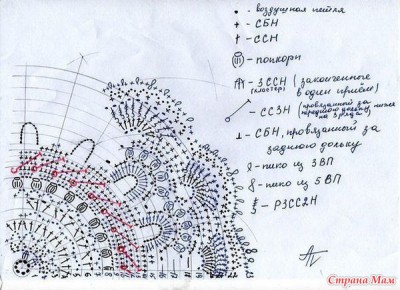 • - воздушная петля
+ - СБН
† - ССН
- попкорн
- 3ССН (законченные
(кластер) в один приём)
- СС3Н (провязанный за
переднюю дольку, ниже
на 3 ряда)
⊥ - СБН, провязанный за
заднюю дольку
- пико из 3 ВП
- пико из 5 ВП
- Р3СС2Н
Страна Мам